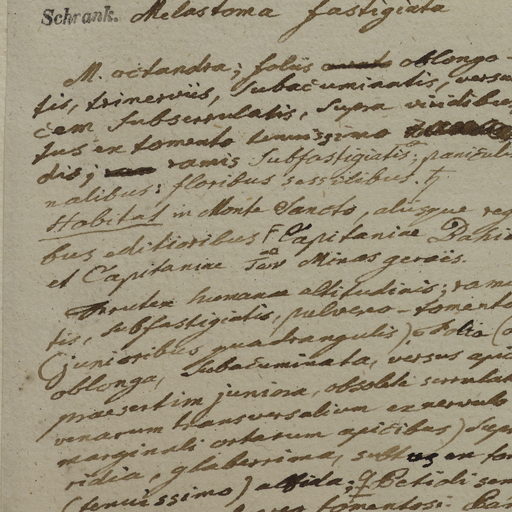 Schrank. Melastoma fastigiata
M. octandra; foliis oblongo-
tis, trinerviis, subacuminatis, versu
cem subserrulatis, supra viridibus
tus ex tomento tenuissimo
dis; ramis subfastigiatis; panicul
nalibus: floribus sessilibus. ♄
Habitat in Monte Sancto, aliisque reg
bus editioribus Capitaniae Bahi
et Capitaniae Minas geraes.
Frutex humanae altitudinis; ram
tis, subfastigiatis, pulvero-tomento
(junioribus quadrangulis) folia
oblonga, subacuminata, versus apic
praesertim juniora, obsolete serrulat
venarum transversalium ex nervulo
marginali ortarum apicibus) sup
ridia, glaberrima, subtus ex to
(tenuissimo) albida; Petioli sem
tomentosi: